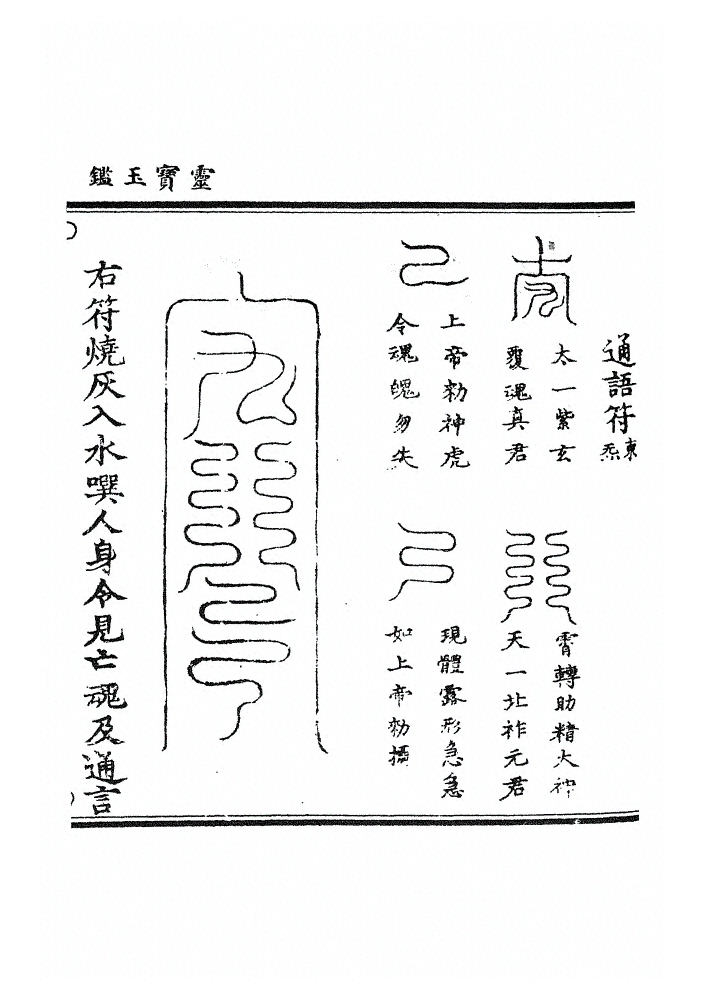 靈寶玉鑑
通語符
東炁
太一紫玄
覆魂真君
霄轉助精大神
天一北祚元君
上帝勑神虎
令魂魄勿失
現體露形急急
如上帝勑攝
右符燒灰入水噀人身令見亡魂及通言